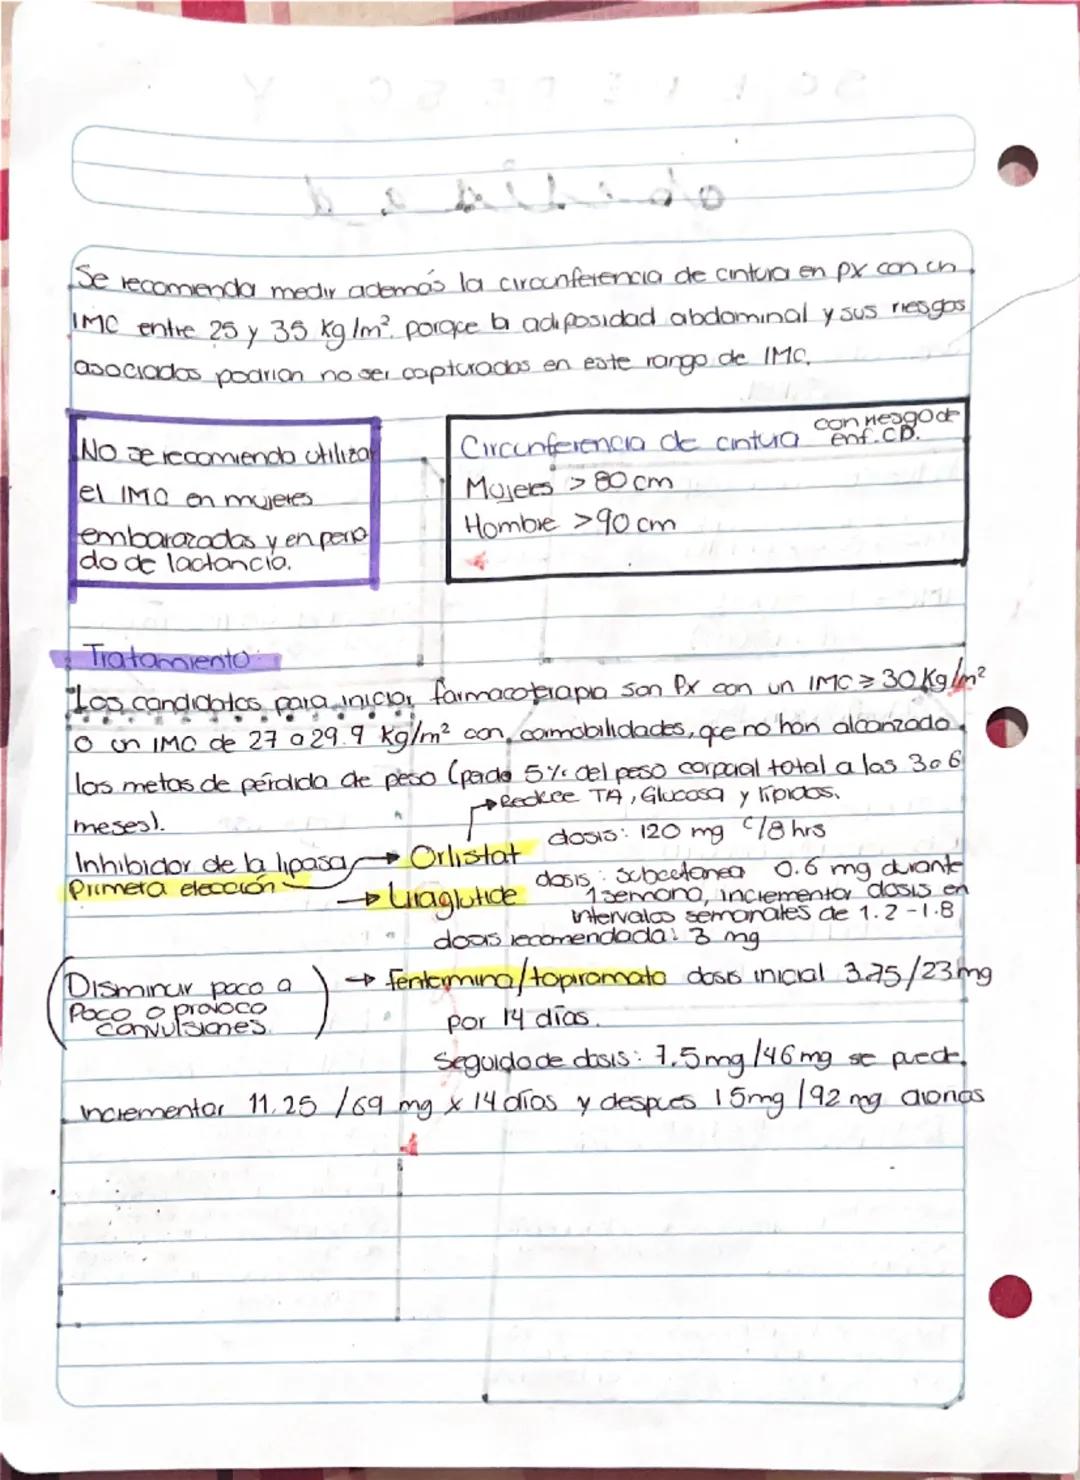 Se recomienda medir además la circunferencia de cintura en px con un
IMC entre 25 y 35 kg/m². porque la adiposidad abdominal y sus riesgos
asociados podrían no ser capturados en este rango de IMC.
No se recomienda utilizar
el IMC en mujeres
embarazadas y en perio
do de lactancia.
Circunferencia de cintura con riesgo de
enf. CD.
Mujeres > 80 cm
Hombre > 90 cm
Tratamiento:
Los candidatos para iniciar farmacoterapia son Px con un IMC ≥ 30 Kg/m²
o un IMC de 27 a 29.9 Kg/m² con comobilidades, que no han alcanzado
las metas de pérdida de peso (perdo 5% del peso corporal total a las 3 o 6
meses).
→ Reduce TA, Glucosa y lípidos.
Inhibidor de la lipasa → Orlistat dosis: 120 mg c/8 hrs
Primera elección
→ Liraglutide dosis: subcutanea 0.6 mg durante
1 semana, incrementar dosis en
intervalos semanales de 1.2 - 1.8
dosis recomendada: 3 mg
(Disminuir poco a
poco o provoco
convulsiones)
→ fentermina/topiramato dosis inicial 3.75/23 mg
por 14 días.
Seguido de dosis: 7.5 mg/46 mg se puede
incrementar 11.25 /69 mg x 14 días y despues 15mg /92 mg diarias